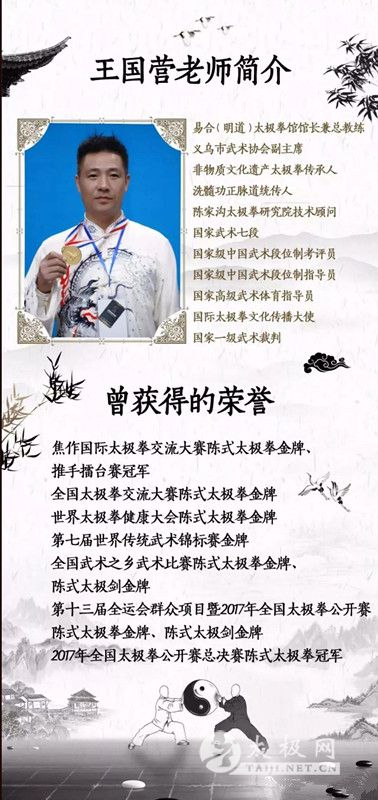 王国营老师简介
易合(明道)太极拳馆馆长兼总教练
义乌市武术协会副主席
非物质文化遗产太极拳传承人
洗髓功正脉道统传人
陈家沟太极拳研究院技术顾问
国家武术七段
国家级中国武术段位制考评员
国家级中国武术段位制指导员
国家高级武术体育指导员
国际太极拳文化传播大使
国家一级武术裁判
曾获得的荣誉
焦作国际太极拳交流大赛陈式太极拳金牌、
推手擂台赛冠军
全国太极拳交流大赛陈式太极拳金牌
世界太极拳健康大会陈式太极拳金牌
第七届世界传统武术锦标赛金牌
全国武术之乡武术比赛陈式太极拳金牌、
陈式太极剑金牌
第十三届全运会群众项目暨2017年全国太极拳公开赛
陈式太极拳金牌、陈式太极剑金牌
2017年全国太极拳公开赛总决赛陈式太极拳冠军
太极网
TAIJI.NET.CN